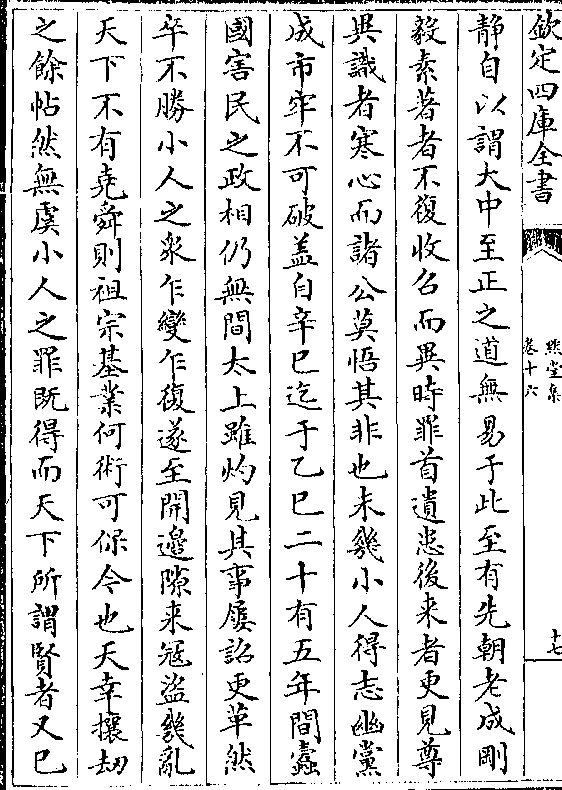 欽定四庫全書
黙堂集
卷十六
十七
静自以謂大中至正之道無易于此至有先朝老成剛
毅素著者不復收召而異時罪首遺患後来者更見尊
與識者寒心而諸公莫悟其非也未幾小人得志幽黨
成市牢不可破盖自辛巳迄于乙巳二十有五年間蠹
國害民之政相仍無間太上雖灼見其事屢詔更革然
卒不勝小人之衆乍變乍復遂至開邉隙来冦盗幾亂
天下不有堯舜則祖宗基業何術可保今也天幸攘刼
之餘帖然無虞小人之罪既得而天下所謂賢者又已